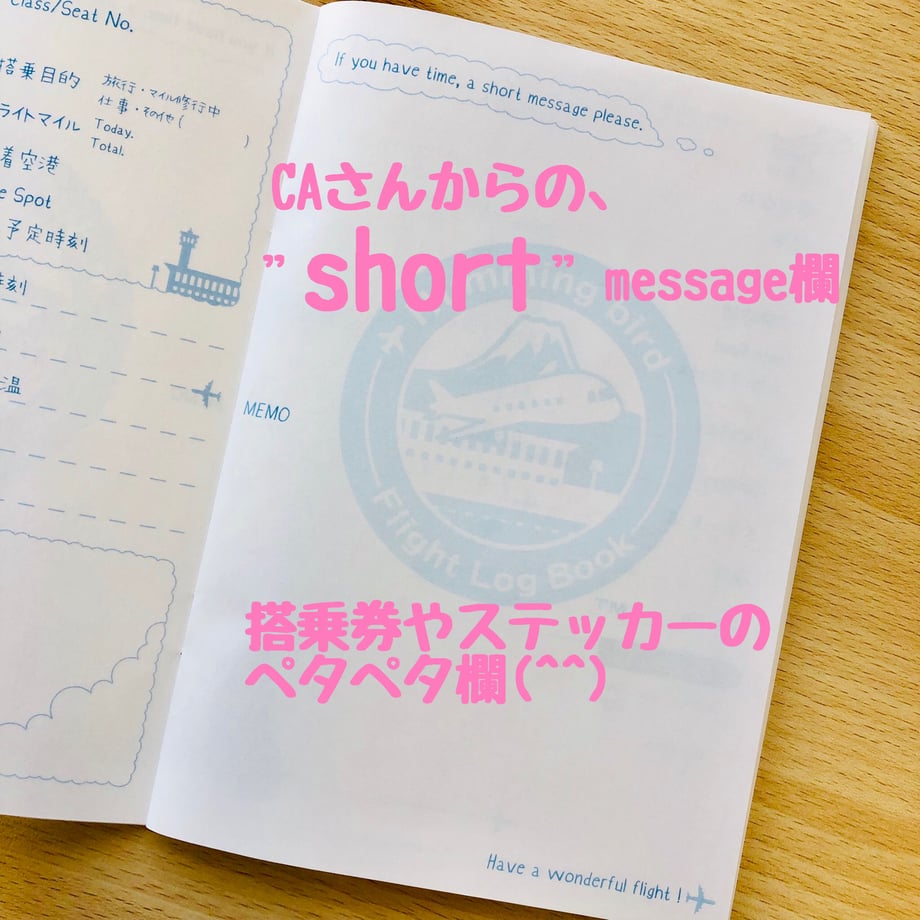 Class/Seat No.
搭乗目的
旅行・マイル修行中
仕事・その他(          )
ライトマイル
Today.
Total.
着空港
e Spot
予定時刻
時刻
温
If you have time, a short message please.
CAさんからの、
"short" message欄
Humming bird
MEMO
Flight Log Book
搭乗券やステッカーの
ペタペタ欄(^^)
Have a wonderful flight!